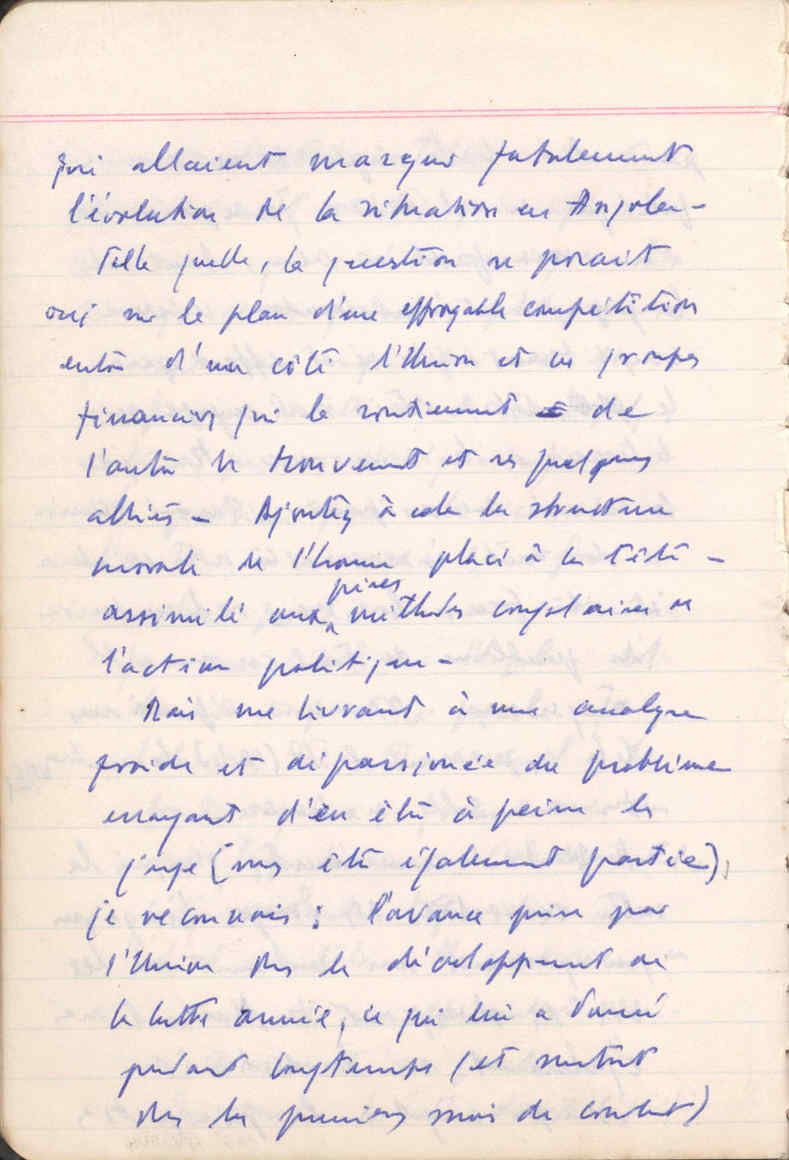 qui allaient marquer fatalement
l'évolution de la situation en Angola –
Telle quelle, la question se posait
sur le plan d'une effroyable compétition
entre d'un côté l'Union et ses groupes
financiers qui le soutiennent de
l'autre le Mouvement et ses quelques
alliés – Ajoutez à cela la structure
morale de l'homme placé à la tête –
assimilé aux pires méthodes de
l'action politique –
Mais me livrant à une analyse
froide et dépassionnée du problème
essayant d'en être à peine le
juge (sans être également partie),
je reconnais : l'avance prise par
l'Union dès le développement de
la lutte armée, ce qui lui a donné
pendant longtemps (et surtout
dès les premiers mois de combat)